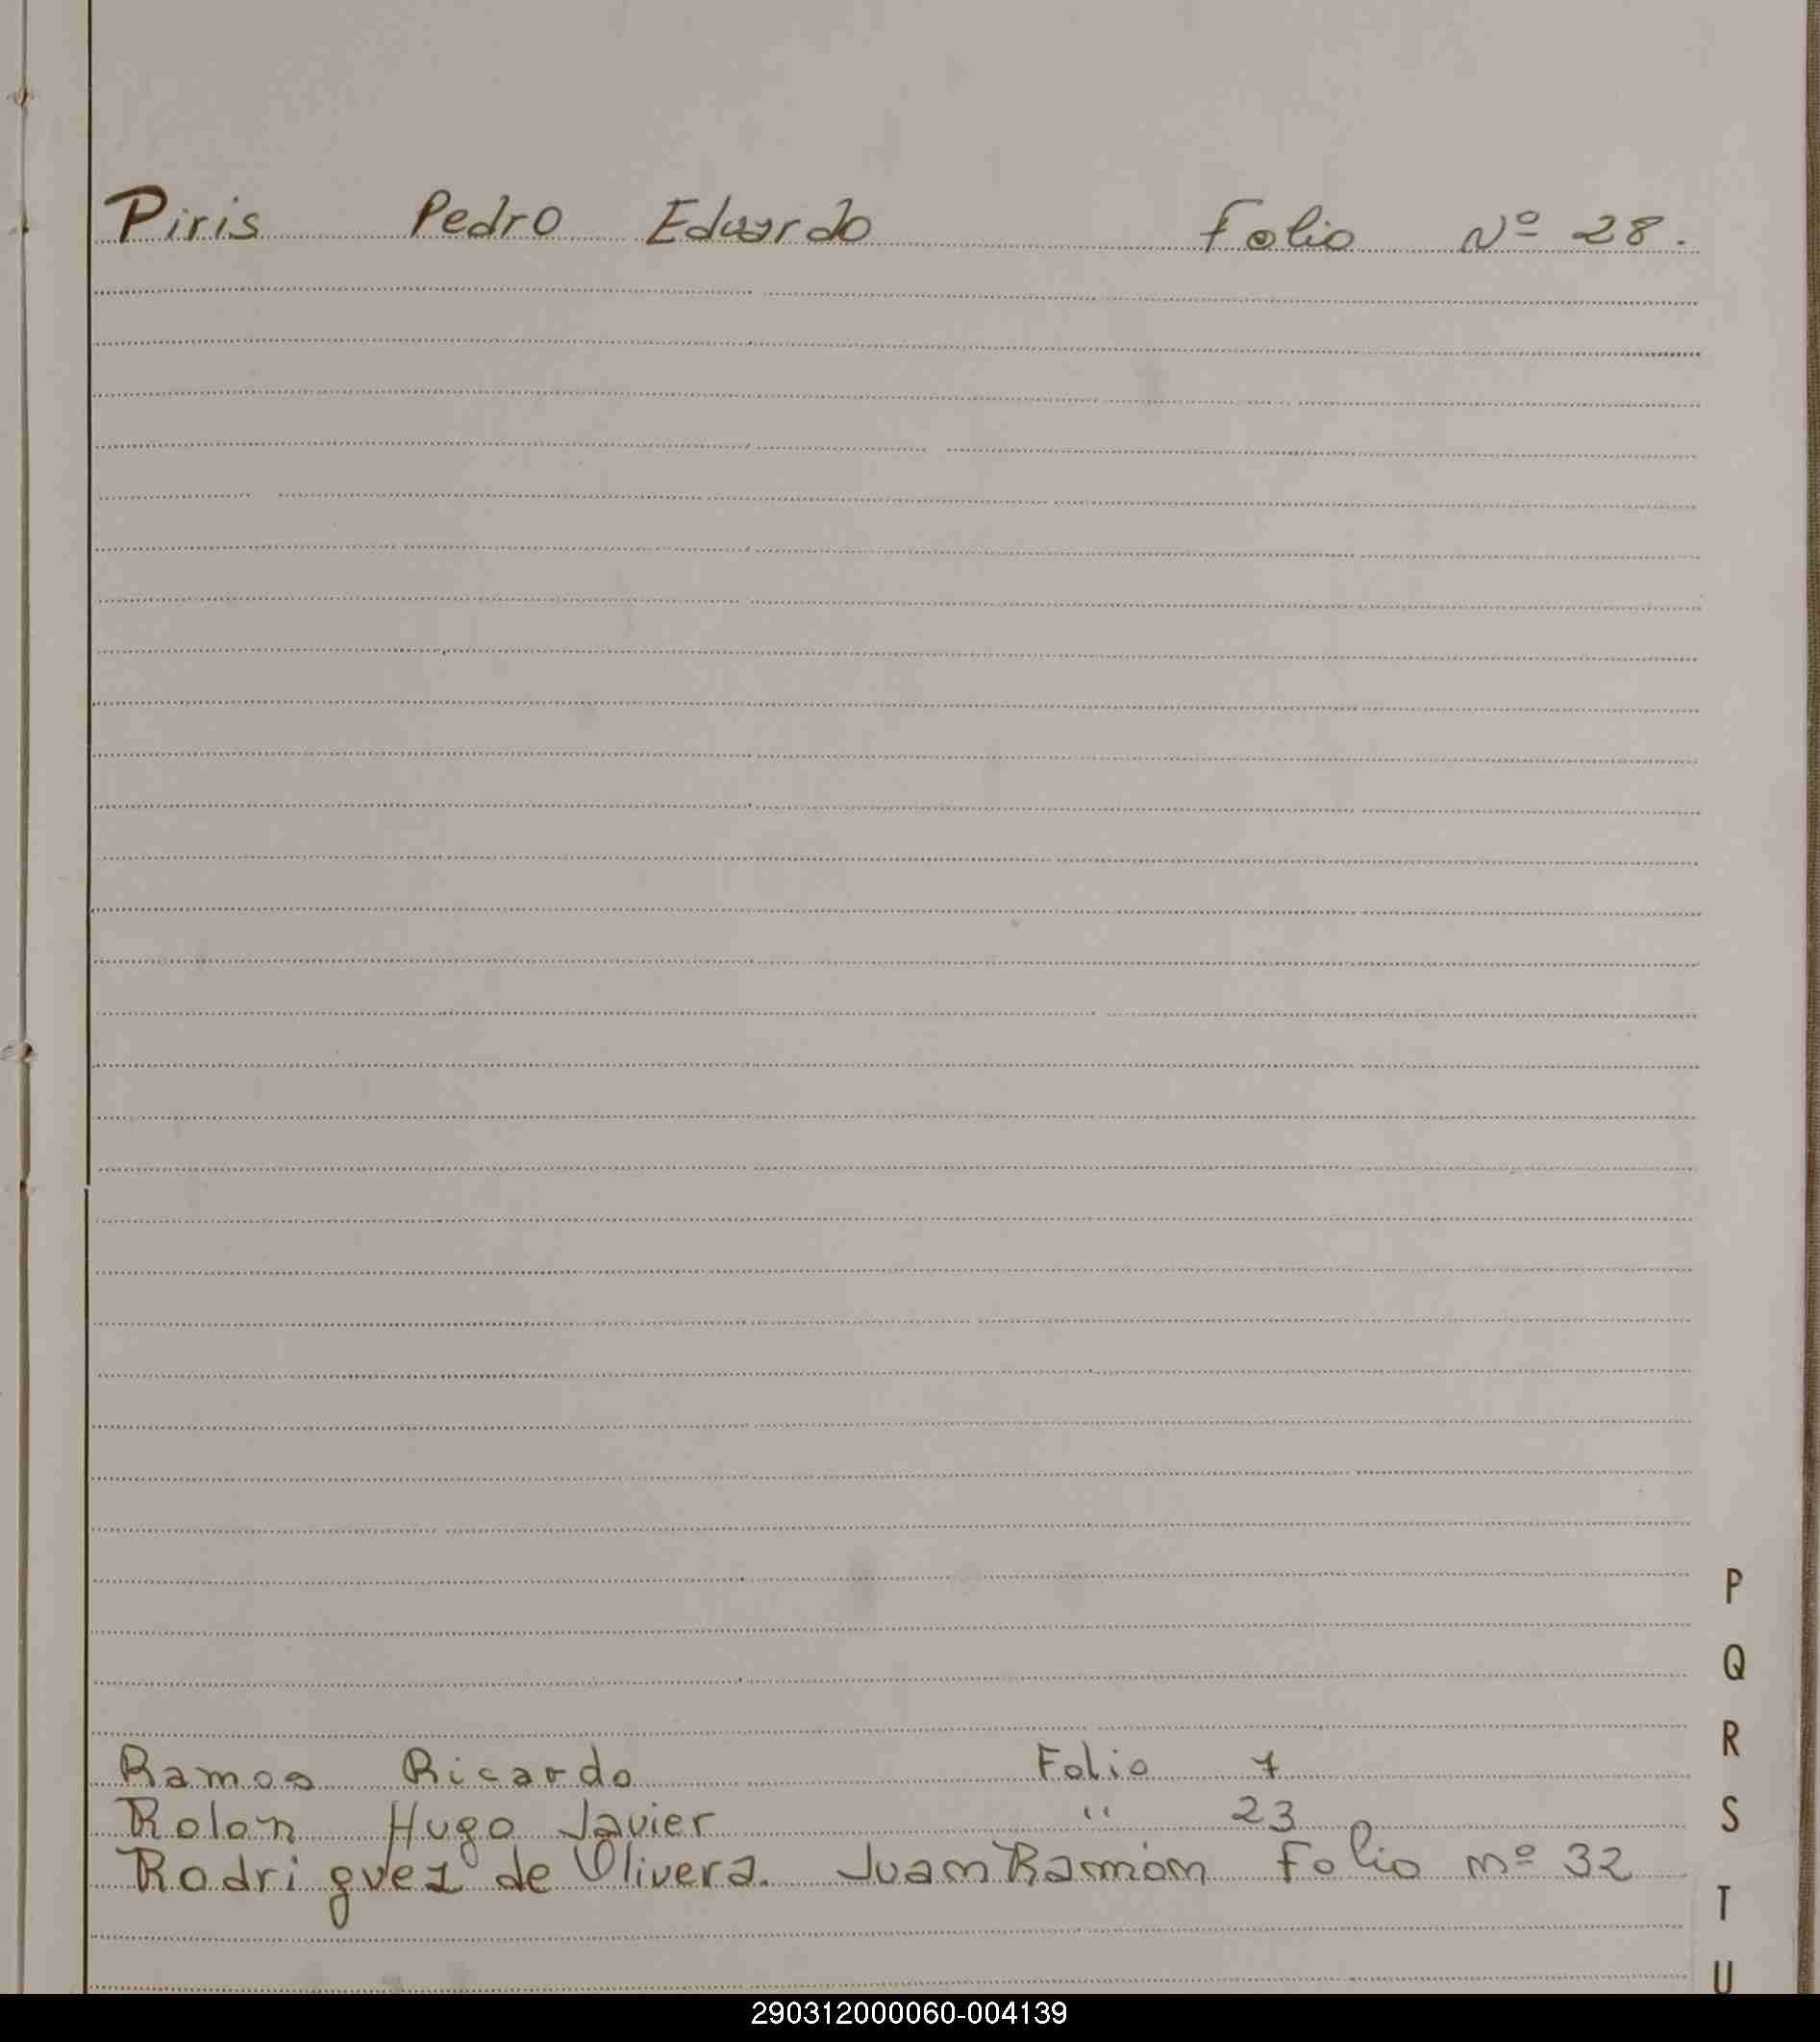 Piris Pedro Eduardo Folio Nº 28.
P
Q
R
Ramos Ricardo Folio 7
Rolon Hugo Javier " 23
S
Rodriguez de Olivera. Juan Ramón Folio nº 32
T
U
290312000060-004139